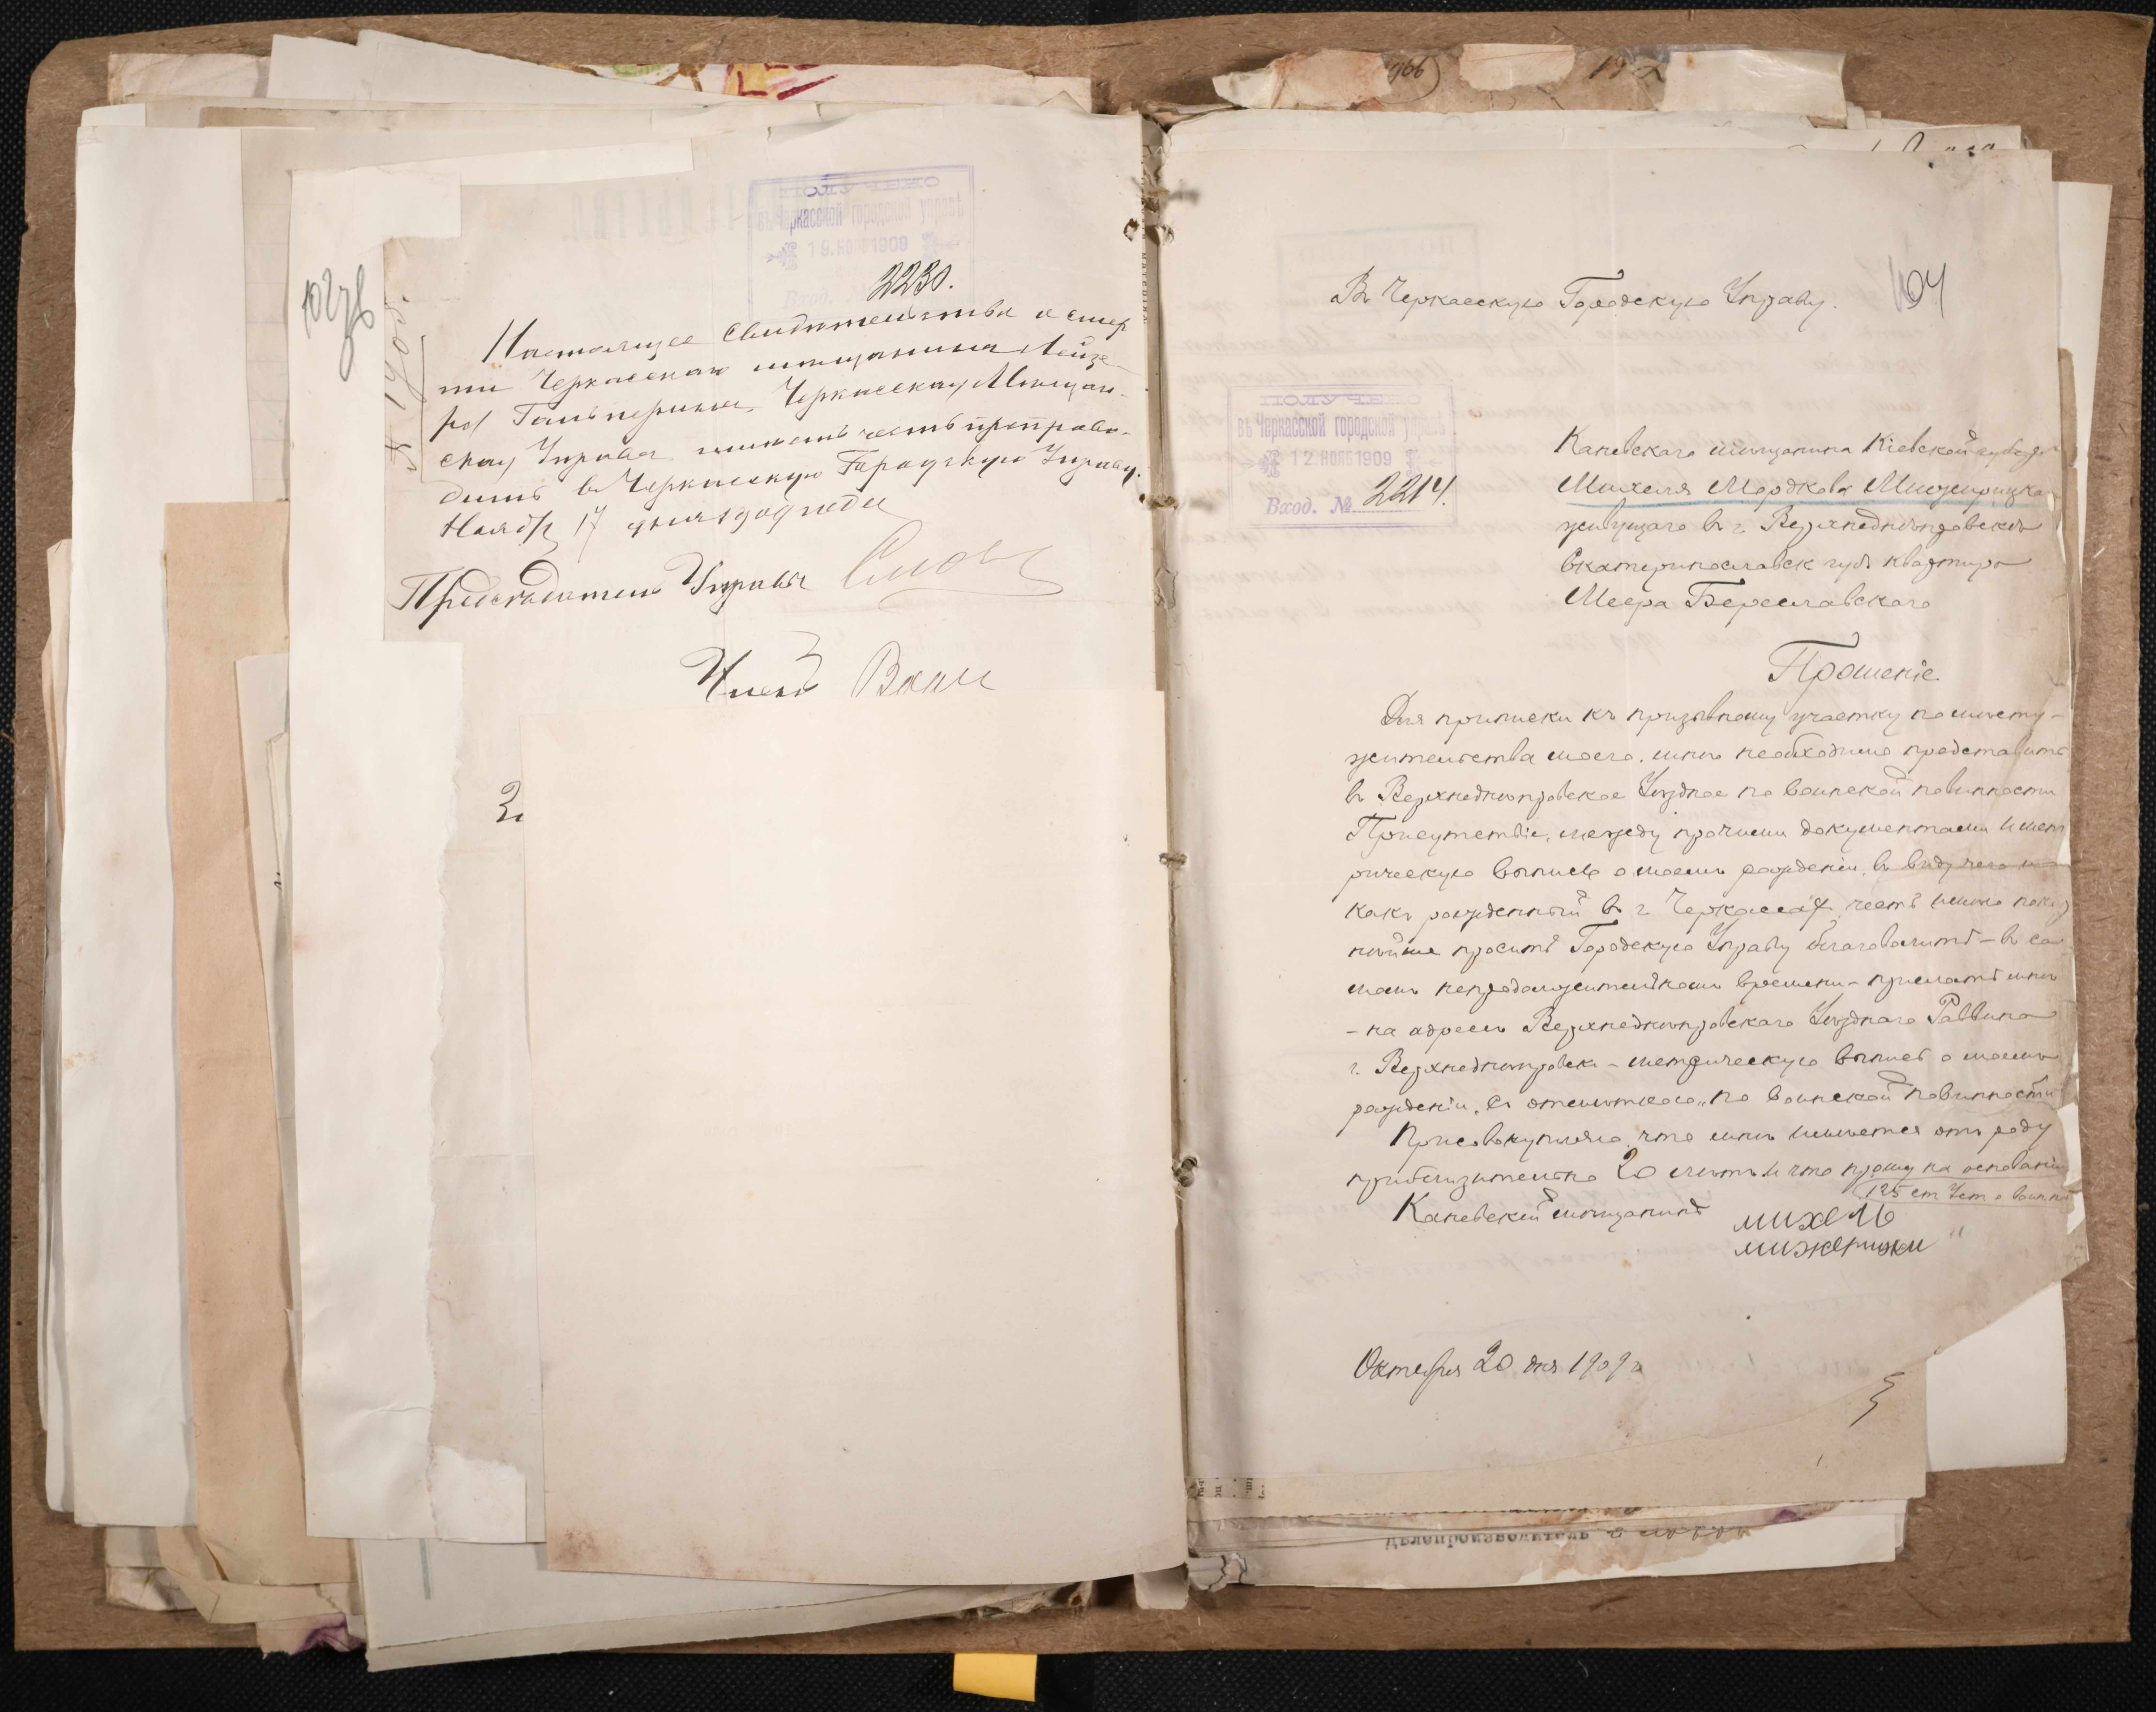 ПОЛУЧЕНО
въ Черкасской городской управѣ
19. НОЯБ 1909
Вход. №
2230.
Настоящее свидѣтельство о смер
ти Черкасскаго мѣщанина Лейзе-
ра Гальперина, Черкасская Мѣщан-
ская Управа имѣетъ честь препрово-
дить въ Черкасскую Городскую Управу.
Ноября 17 дня 1909 года
Предсѣдатель Управы
Членъ
966
104
Въ Черкасскую Городскую Управу.
ПОЛУЧЕНО
въ Черкасской городской управѣ
12. НОЯБ 1909
Вход. № 2214.
Каневскаго мѣщанина Кіевской губ
Михеля Мордкова Мижирицка
живущаго въ г. Верхнеднѣпровскѣ
Екатеринославск губ квартира
Меера Береславскаго
Прошеніе
Для приписки къ призывному участку по мѣсту-
жительства моего, мнѣ необходимо представить
въ Верхнеднѣпровское Уѣздное по воинской повинности
Присутствіе, между прочими документами и мет
рическую выпись о моемъ рожденіи, въ виду чего
какъ рожденный въ г. Черкассах, честь имѣю покор
нѣйше просить Городскую Управу благоволить - въ са
момъ непродолжительномъ времени - прислать мнѣ
- на адресъ Верхнеднѣпровскаго Уѣзднаго Раввина
г. Верхнеднѣпровск - метрическую выпись о моемъ
рожденіи, съ отмѣткою „по воинской повинности
Присовокупляю, что мнѣ имѣется отъ роду
приблизительно 20 лѣтъ и что прошу на основаніи
125 ст Уст о воинск
Каневскій мѣщанинъ михель
мижерицки
Октября 20 дня 1909 г.
Дѣлопроизводитель